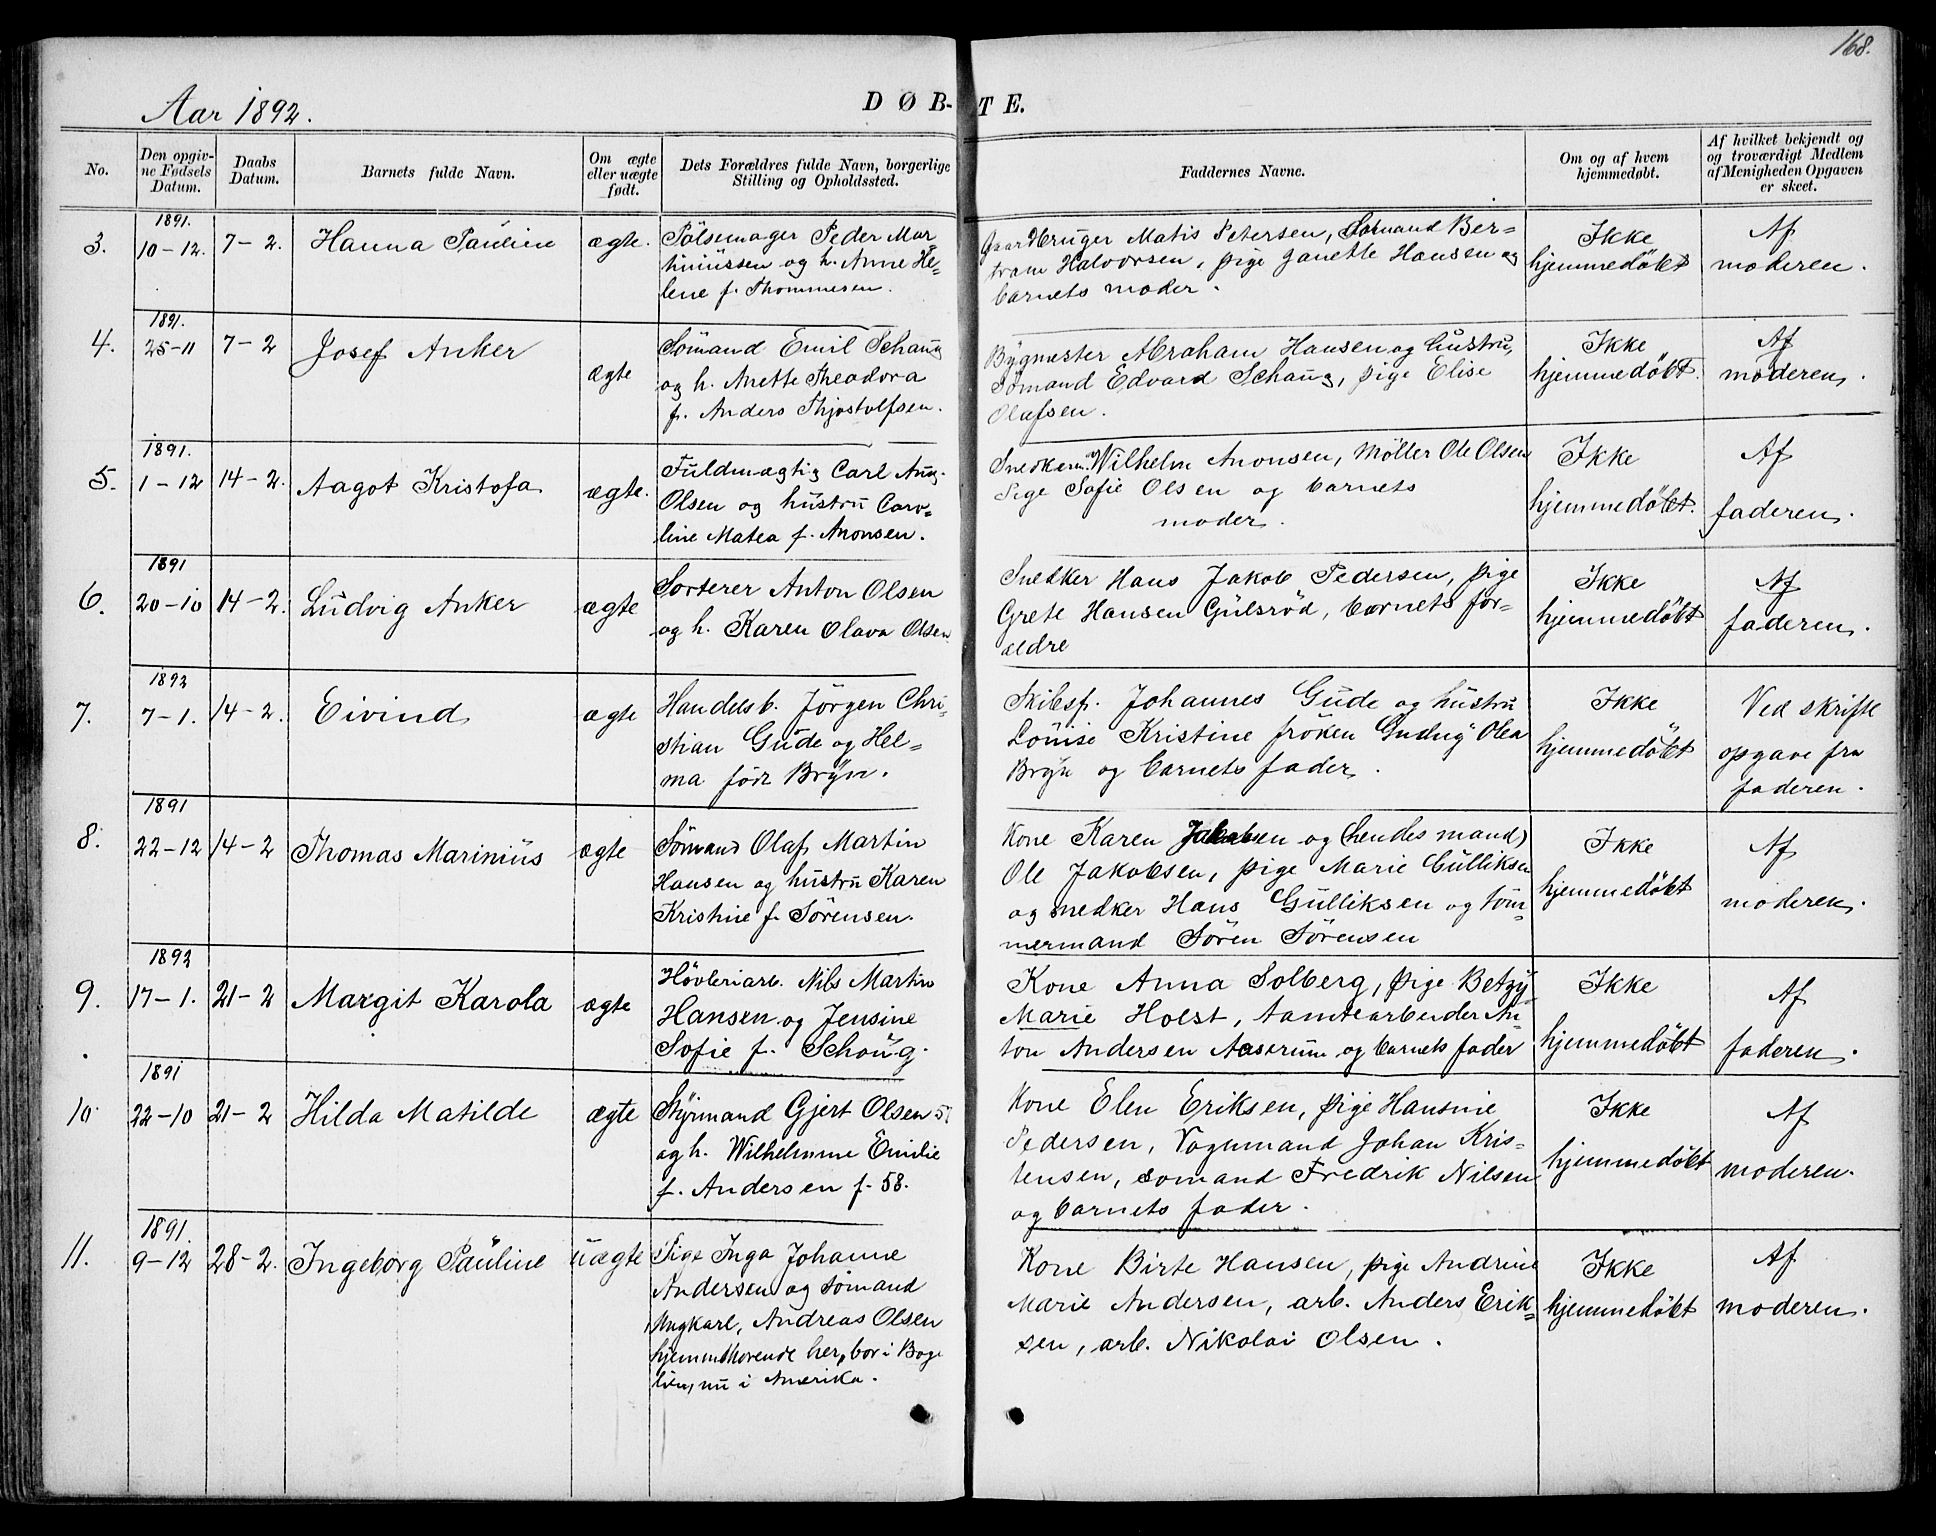 168.
Aar 1892.
DØB-
TE.
No.
Den opgiv-
ne Fødsels
Datum.
Daabs
Datum.
Barnets fulde Navn.
Om ægte
eller uægte
født.
Dets Forældres fulde Navn, borgerlige
Stilling og Opholdssted.
Faddernes Navne.
Om og af hvem
hjemmedøbt.
Af hvilket bekjendt og
og troværdigt Medlem
af Menigheden Opgaven
er skeet.
3.
1891.
10-12.
7-2.
Hanna Pauline
ægte.
Pølsemager Peder Mar-
tiniussen og h. Anne He-
lene f. Thommesen.
Gaardbruger Matis Petersen, Sømand Ber-
tram Halvorsen, pige Janette Hansen og
barnets moder.
Ikke
hjemmedøbt
Af
moderen.
4.
1891.
25-11
7-2
Josef Anker
ægte
Sømand Emil Schaug
og h. Anette Theodora
f. Anders Thjostolfsen.
Bygmester Abraham Hansen og hustru,
Sømand Edvard Schaug, pige Elise
Olafsen.
Ikke
hjemmedøbt.
Af
moderen.
5.
1891.
1-12
14-2.
Aagot Kristofa
ægte.
Fuldmægtig Carl Aug.
Olsen og hustru Caro-
line Matea f. Anonsen.
Snedkerm. Wilhelm Anonsen, Møller Ole Olsen
Pige Sofie Olsen og barnets
moder.
Ikke
hjemmedøbt.
Af
faderen.
6.
1891
20-10
14-2.
Ludvig Anker
ægte
Sorterer Anton Olsen
og h. Karen Olava Olsen
Snedker Hans Jakob Pedersen, pige
Grete Hansen Gulsrød, barnets for-
ældre
Ikke
hjemmedøbt
Af
faderen.
7.
1892
7-1.
14-2.
Eivind
ægte
Handelsb. Jørgen Chri-
stian Gude og Hel-
ma född Bryn.
Skibsf. Johannes Gude og hustru
Louise Kristine frøken Gudny Olea
Bryn og barnets fader.
Ikke
hjemmedøbt
Ved skriftl
opgave fra
faderen.
8.
1891
22-12
14-2
Thomas Marinius
ægte
Sømand Olaf Martin
Hansen og hustru Karen
Kristine f. Sørensen.
Kone Karen Jakobsen og (hendes mand)
Ole Jakobsen, pige Marie Gulliksen
og snedker Hans Gulliksen og tøm-
mermand Søren Sørensen
Ikke
hjemmedøbt
Af
moderen.
9.
1892
17-1.
21-2
Margit Karola
ægte
Høvleriarb. Nils Martin
Hansen og Jensine
Sofie f. Schoug.
Kone Anna Solberg, pige Betzy
Marie Holst, tomtearbeider An-
ton Andersen Aaserum og barnets fader
Ikke
hjemmedøbt
Af
faderen.
10
1891
22-10
21-2
Hilda Matilde
ægte
Styrmand Gjert Olsen
og h. Wilhelmine Emilie
f. Andersen f. 58.
Kone Elen Eriksen, pige Hansine
Pedersen, Vognmand Johan Kris-
tensen, sømand Fredrik Nilsen
og barnets fader.
Ikke
hjemmedøbt
Af
moderen.
11.
1891.
9-12
28-2.
Ingeborg Pauline
uægte
Pige Inga Johanne
Andersen og sømand
Ungkarl, Andreas Olsen
hjemmehørende her, bor i Boge
lien, nu i Amerika.
Kone Birte Hansen, pige Andrine
Marie Andersen, arb. Anders Erik-
sen, arb. Nikolai Olsen.
Ikke
hjemmedøbt
Af
moderen.